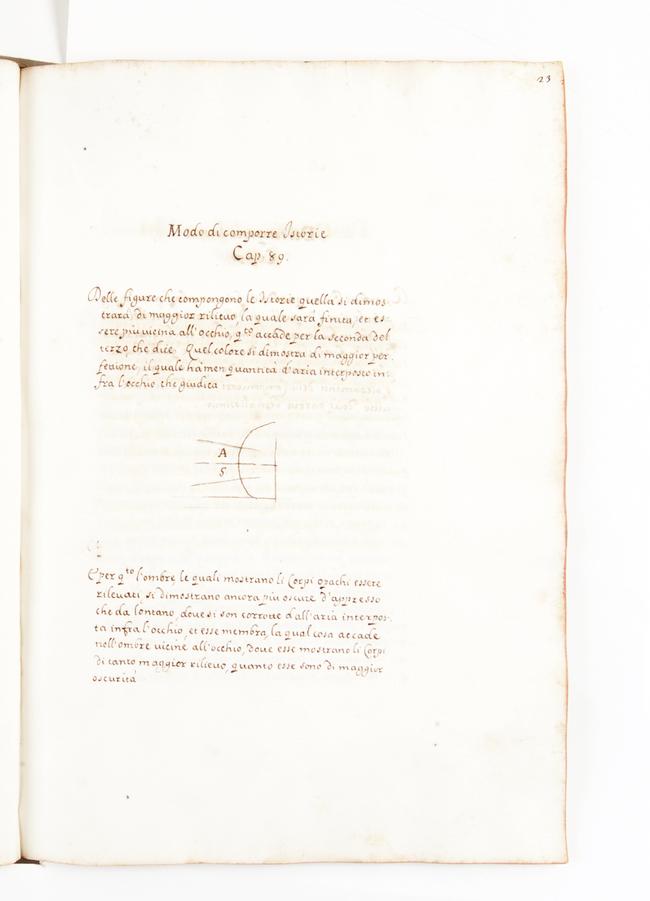 23
Modo di comporre Istorie
Cap. 89.
Delle figure che compongono le Istorie quella si dimos-
trarà di maggior rilievo, la quale sarà finita, et es-
sere più vicina all'occhio, q.to accade per la seconda del
terzo, che dice. Quel colore si dimostra di maggior per-
fezione, il quale hà men quantità d'aria interposto in-
fra l'occhio che giudica
A
S
E per q.to l'ombre, le quali mostrano li Corpi opachi essere
rilevati, si dimostrano ancora più oscure d'appresso
che da lontano, dove si son corrotte dall'aria interpos-
ta infra l'occhio, et esse membra, la qual cosa accade
nell'ombre vicine all'occhio, Dove esse mostrano li Corpi
di tanto maggior rilievo, quanto esse sono di maggior
oscurità